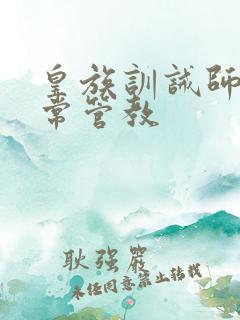 皇族訓誡師
常管教
耿强嚴
未任同意禁止转载